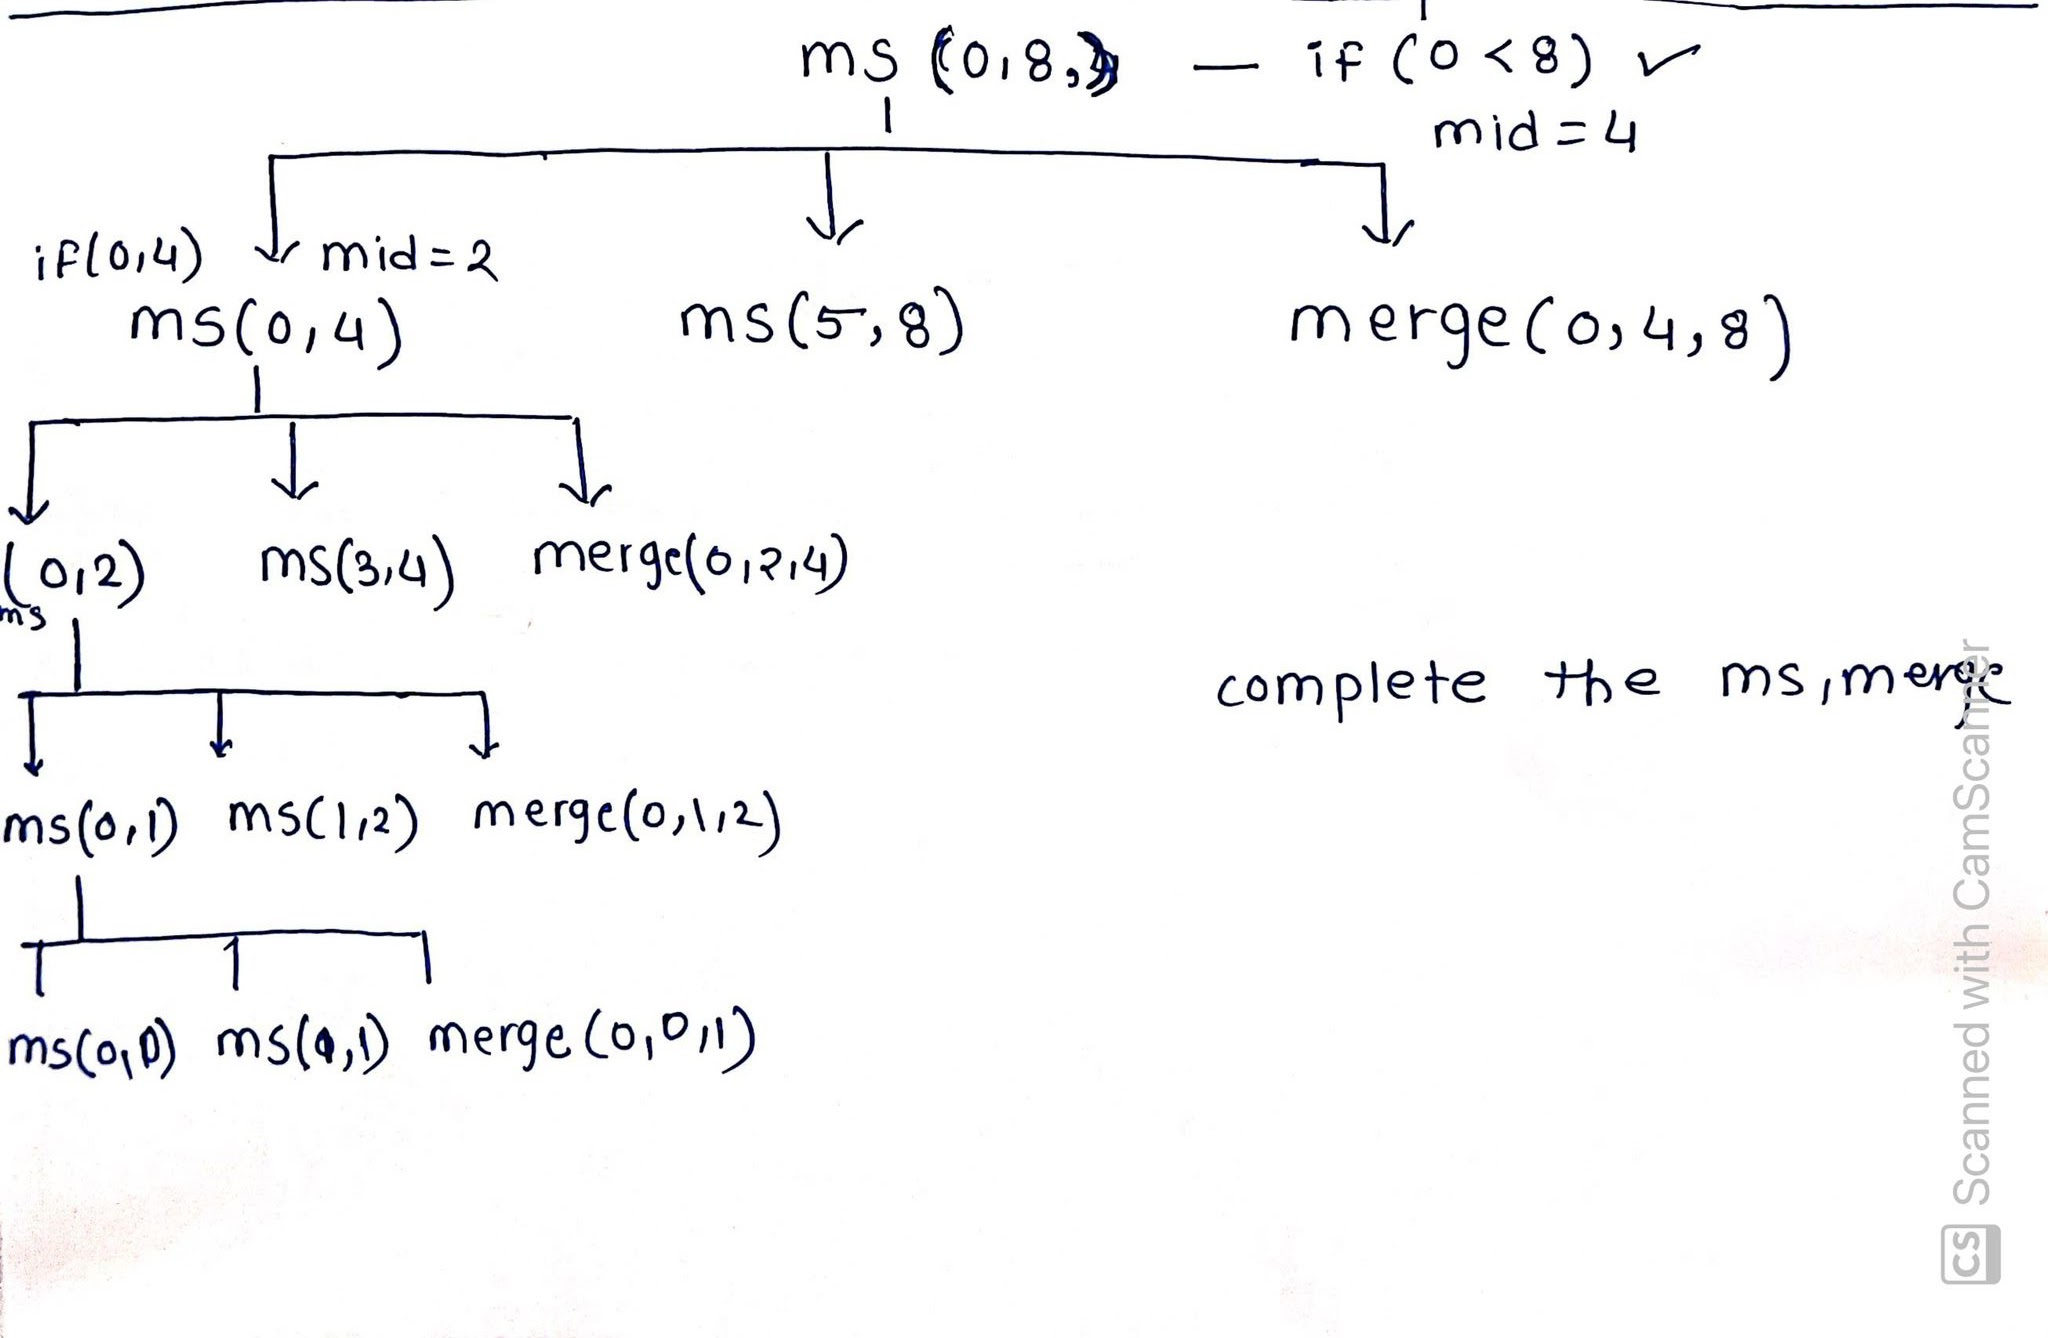 ms (0,8,) — if (0 < 8) ✓
mid = 4
if(0,4) mid = 2
ms(0,4) ms(5,8) merge(0,4,8)
(0,2) ms(3,4) merge(0,2,4)
ms
complete the ms, merge
ms(0,1) ms(1,2) merge(0,1,2)
ms(0,0) ms(0,1) merge(0,0,1)
CS Scanned with CamScanner